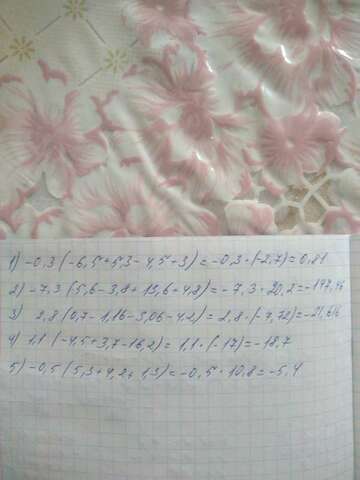 1) -0,3 (-6,5+5,3-4,5+3) = -0,3 · (-2,7) = 0,81
2) -7,3 (5,6-3,8+13,6+4,8) = -7,3 · 20,2 = -147,46
3) 2,8 (0,7-1,16-3,06-4,2) = 2,8 · (-7,72) = -21,616
4) 1,1 (-4,5+3,7-16,2) = 1,1 · (-17) = -18,7
5) -0,5 (5,3+4,2+1,3) = -0,5 · 10,8 = -5,4